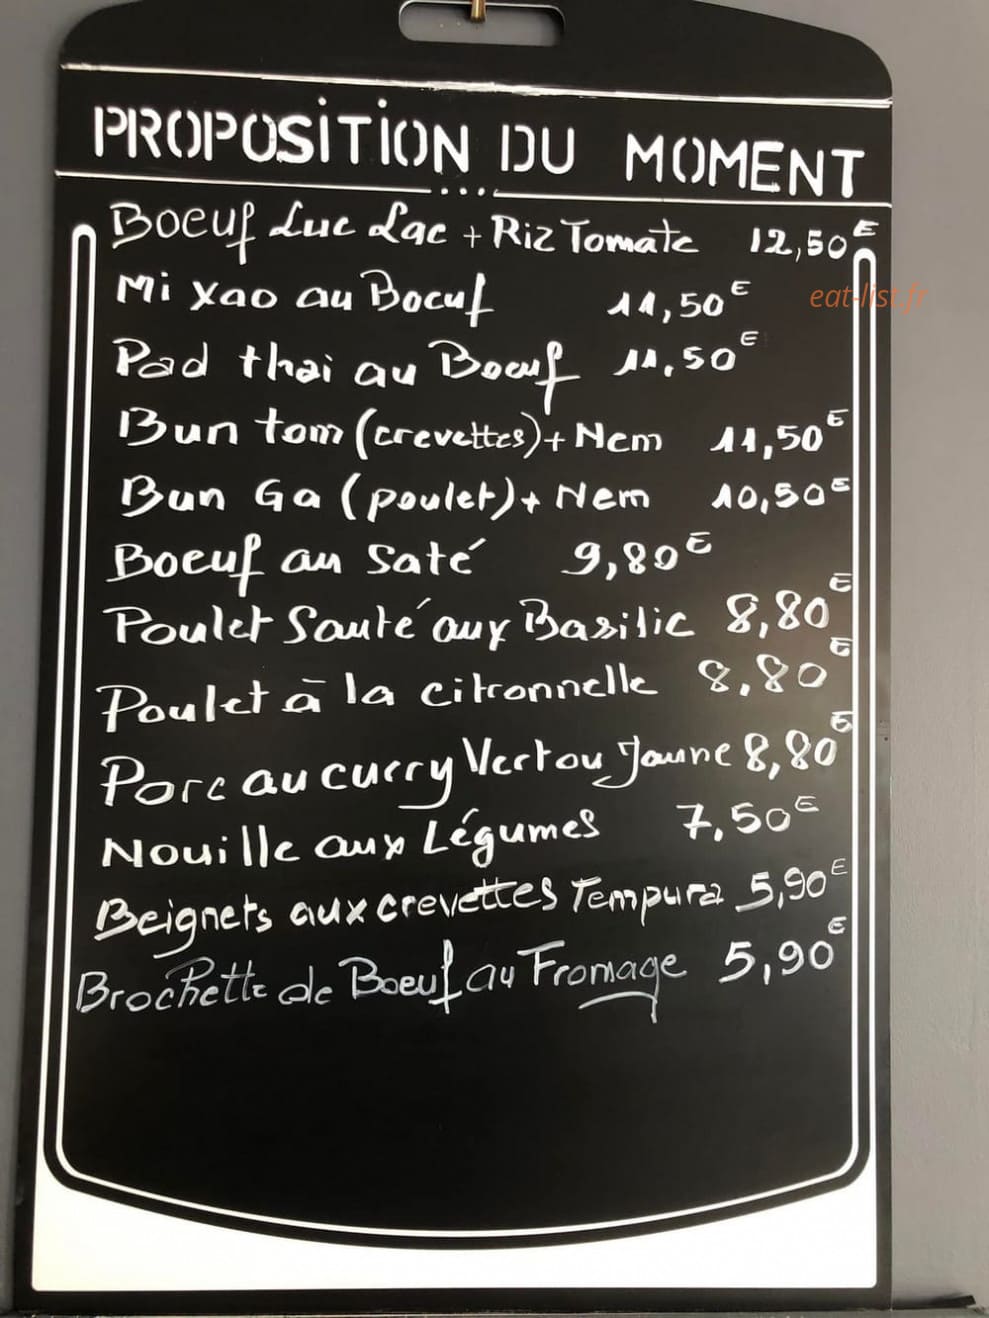 PROPOSITION DU MOMENT
Boeuf Luc Lac + Riz Tomate 12,50€
Mi Xao au Boeuf 11,50€
eat-list.fr
Pad thai au Boeuf 11,50€
Bun tom (crevettes) + Nem 11,50€
Bun Ga (poulet) + Nem 10,50€
Boeuf au Saté 9,80€
Poulet Sauté aux Basilic 8,80€
Poulet à la citronnelle 8,80€
Porc au curry Vert ou Jaune 8,80€
Nouille aux Légumes 7,50€
Beignets aux crevettes Tempura 5,90€
Brochette de Boeuf au Fromage 5,90€